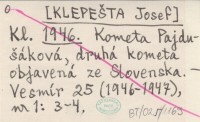 [KLEPEŠTA Josef]
Kl. 1946. Kometa Pajdu-
šáková, druhá kometa
objavená ze Slovenska.-
Vesmír 25 (1946-1947),
nr 1: 3-4.